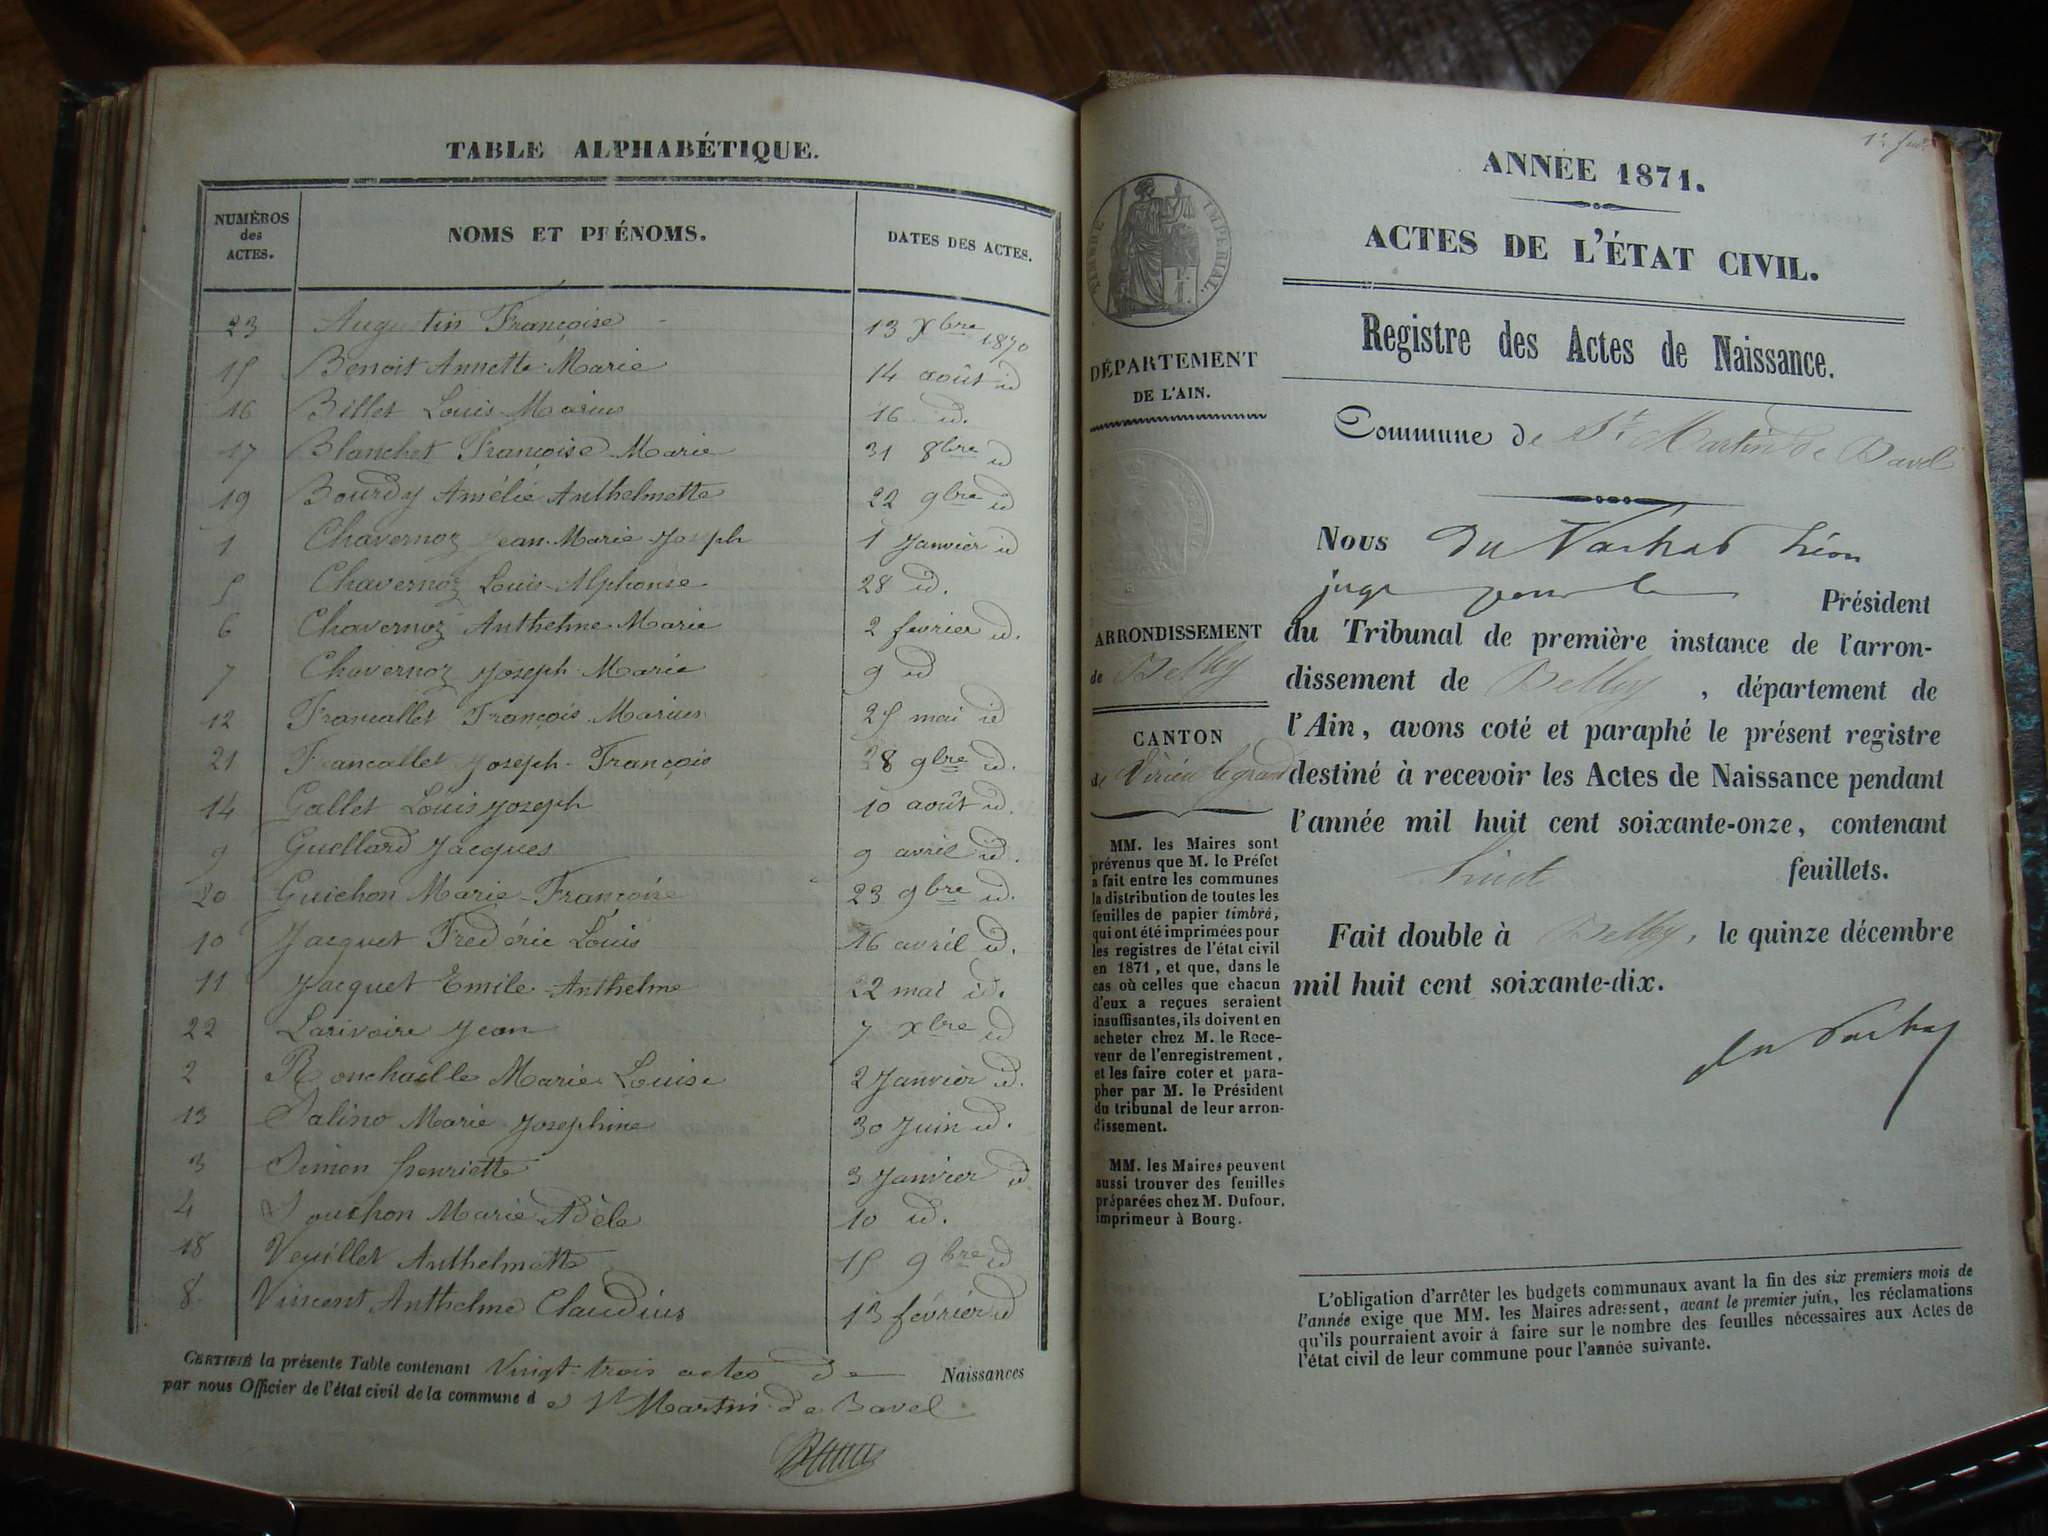 TABLE ALPHABÉTIQUE.
NUMÉROS des ACTES. NOMS ET PRÉNOMS. DATES DES ACTES.
23 Augustin Françoise 13 Xbre 1870
15 Benoit Annette Marie 14 août id
16 Billet Louis Marius 16 id.
17 Blanchet Françoise Marie 31 8bre id
19 Bourdy Amélie Anthelmette 22 9bre id
1 Chavernoz Jean-Marie Joseph 1 Janvier id
5 Chavernoz Louis-Alphonse 28 id.
6 Chavernoz Anthelme Marie 2 février id.
7 Chavernoz Joseph Marie 9 id
12 Francallet François Marius 25 mai id
21 Francallet Joseph-François 28 9bre id.
14 Gallet Louis Joseph 10 août id.
9 Guillard Jacques 9 avril id.
20 Guichon Marie-Françoise 23 9bre id.
10 Jacquet Frédéric Louis 16 avril id.
11 Jacquet Emile-Anthelme 22 mai id.
22 Larivoire Jean 7 Xbre id
2 Ronchaille Marie Louise 2 Janvier id.
13 Salino Marie Josephine 30 Juin id.
3 Simon henriette 3 Janvier id
4 Souchon Marie Adèle 10 id.
18 Veuillet Anthelmette 15 9bre id
8 Vincent Anthelme Claudius 13 février id
CERTIFIÉ la présente Table contenant Vingt-trois actes de Naissances
par nous Officier de l'état civil de la commune d e St Martin de Bavel
1er feuil
ANNÉE 1871.
ACTES DE L'ÉTAT CIVIL.
Registre des Actes de Naissance.
Commune de St Martin de Bavel
TIMBRE IMPÉRIAL.
DÉPARTEMENT
DE L'AIN.
ARRONDISSEMENT
de Belley
CANTON
de Virieu legrand
MM. les Maires sont
prévenus que M. le Préfet
a fait entre les communes
la distribution de toutes les
feuilles de papier timbré,
qui ont été imprimées pour
les registres de l'état civil
en 1871, et que, dans le
cas où celles que chacun
d'eux a reçues seraient
insuffisantes, ils doivent en
acheter chez M. le Rece-
veur de l'enregistrement,
et les faire coter et para-
pher par M. le Président
du tribunal de leur arron-
dissement.
MM. les Maires peuvent
aussi trouver des feuilles
préparées chez M. Dufour,
imprimeur à Bourg.
Nous du Vachat Léon
juge pour le Président
du Tribunal de première instance de l'arron-
dissement de Belley, département de
l'Ain, avons coté et paraphé le présent registre
destiné à recevoir les Actes de Naissance pendant
l'année mil huit cent soixante-onze, contenant
huit feuillets.
Fait double à Belley, le quinze décembre
mil huit cent soixante-dix.
du Vachat
L'obligation d'arrêter les budgets communaux avant la fin des six premiers mois de
l'année exige que MM. les Maires adressent, avant le premier juin, les réclamations
qu'ils pourraient avoir à faire sur le nombre des feuilles nécessaires aux Actes de
l'état civil de leur commune pour l'année suivante.